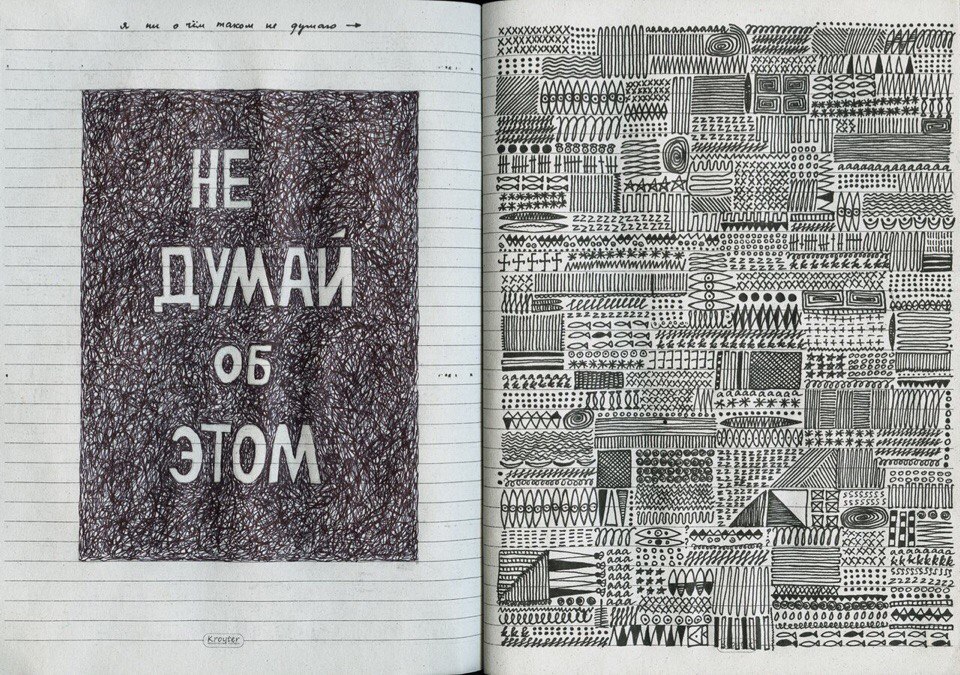 я ни о чём таком не думаю →
НЕ
ДУМАЙ
ОБ
ЭТОМ
Kroyter